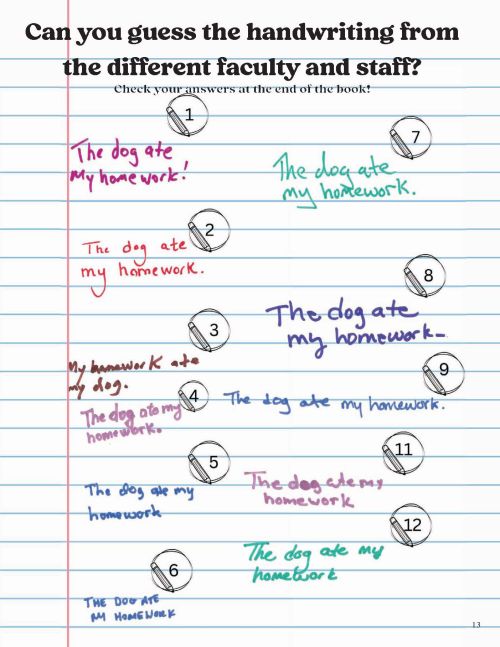 Can you guess the handwriting from
the different faculty and staff?
Check your answers at the end of the book!
1
The dog ate
My homework!
2
The dog ate
my homework.
3
My homework ate
my dog.
4
The dog ate my
homework.
5
The dog ate my
homework
6
THE DOG ATE
MY HOMEWORK
7
The dog ate
my homework.
8
The dog ate
my homework-
9
The dog ate my homework.
11
The dog ate my
homework
12
The dog ate my
homework
13